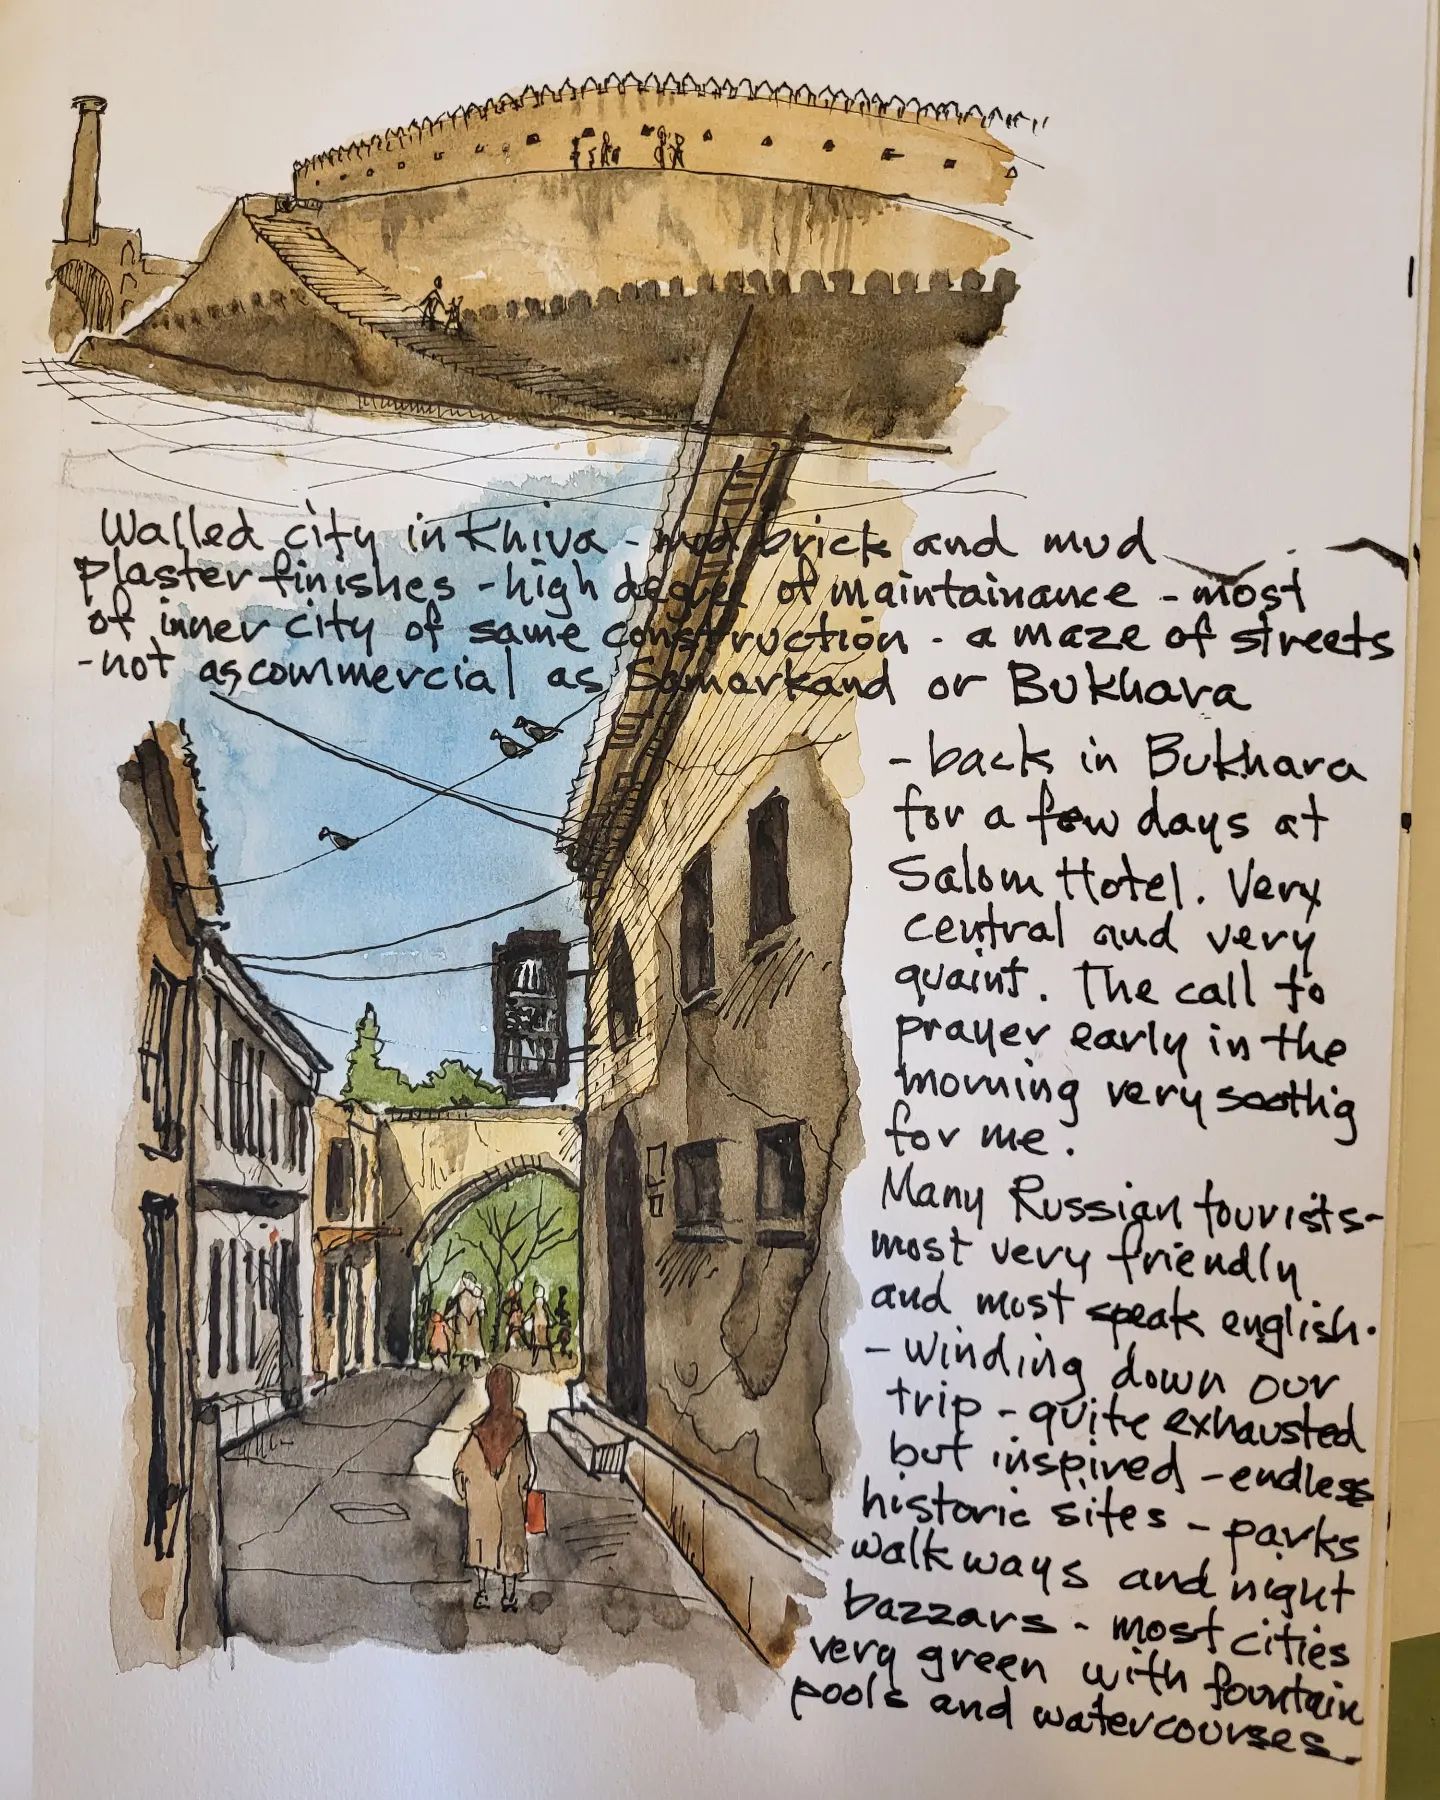 Walled city in Khiva - mud brick and mud
plaster finishes - high degree of maintainance - most
of inner city of same construction - a maze of streets
- not as commercial as Samarkand or Bukhara
- back in Bukhara
for a few days at
Salom Hotel. Very
central and very
quaint. The call to
prayer early in the
morning very soothig
for me.
Many Russian tourists-
most very friendly
and most speak english.
- winding down our
trip - quite exhausted
but inspired - endless
historic sites - parks
walkways and night
bazzars - most cities
very green with fountain
pools and watercourses